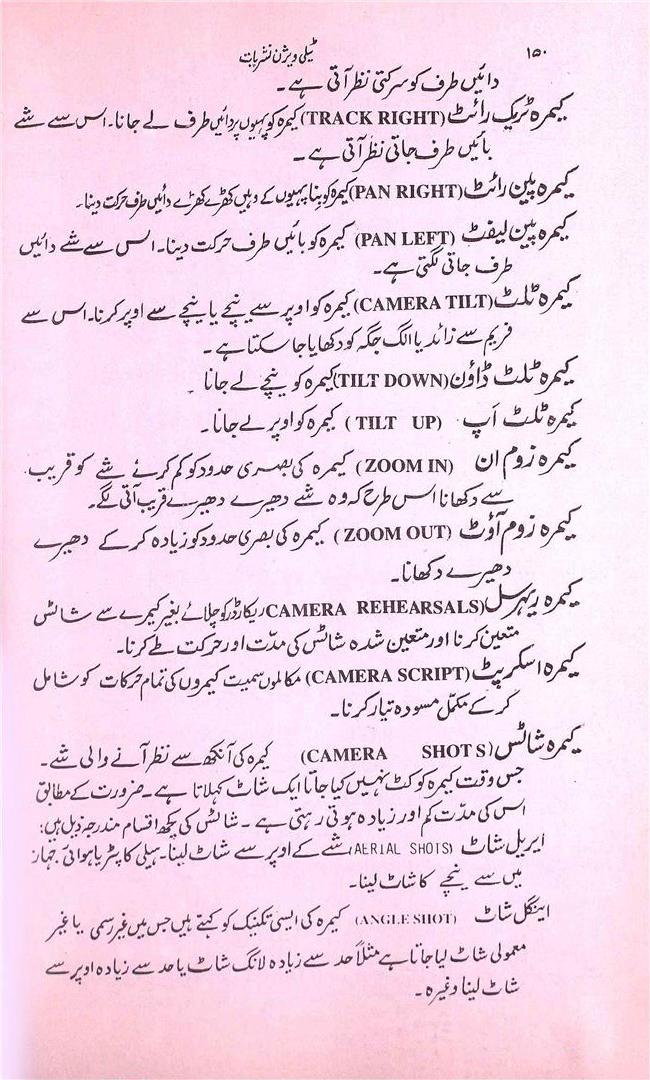 ۱۵۰
ٹیلی ویژن نشریات
دائیں طرف کو سرکتی نظر آتی ہے۔
کیمرہ ٹریک رائٹ (TRACK RIGHT) کیمرہ کو پہیوں پر دائیں طرف لے جانا۔ اس سے شے
بائیں طرف جاتی نظر آتی ہے۔
کیمرہ پین رائٹ (PAN RIGHT) کیمرہ کو بنا پہیوں کے وہیں کھڑے کھڑے دائیں طرف حرکت دینا۔
کیمرہ پین لیفٹ (PAN LEFT) کیمرہ کو بائیں طرف حرکت دینا۔ اس سے شے دائیں
طرف جاتی لگتی ہے۔
کیمرہ ٹلٹ (CAMERA TILT) کیمرہ کو اوپر سے نیچے یا نیچے سے اوپر کرنا۔ اس سے
فریم سے زائد یا الگ جگہ کو دکھایا جا سکتا ہے۔
کیمرہ ٹلٹ ڈاؤن (TILT DOWN) کیمرہ کو نیچے لے جانا۔
کیمرہ ٹلٹ اَپ (TILT UP) کیمرہ کو اوپر لے جانا۔
کیمرہ زوم ان (ZOOM IN) کیمرہ کی بصری حدود کو کم کرنے شے کو قریب
سے دکھانا اس طرح کہ وہ شے دھیرے دھیرے قریب آتی لگے۔
کیمرہ زوم آؤٹ (ZOOM OUT) کیمرہ کی بصری حدود کو زیادہ کر کے دھیرے
دھیرے دکھانا۔
کیمرہ ریہرسل (CAMERA REHEARSALS) ریکارڈر کو چلائے بغیر کیمرے سے شاٹس
متعین کرنا اور متعین شدہ شاٹس کی مدّت اور حرکت طے کرنا۔
کیمرہ اسکرپٹ (CAMERA SCRIPT) مکالموں سمیت کیمروں کی تمام حرکات کو شامل
کر کے مکمّل مسودہ تیار کرنا۔
کیمرہ شاٹس (CAMERA SHOTS) کیمرہ کی آنکھ سے نظر آنے والی شے۔
جس وقت کیمرہ کو کٹ نہیں کیا جاتا ایک شاٹ کہلاتا ہے۔ ضرورت کے مطابق
اس کی مدّت کم اور زیادہ ہوتی رہتی ہے۔ شاٹس کی کچھ اقسام مندرجہ ذیل ہیں:
ایریل شاٹ (AERIAL SHOTS) شے کے اوپر سے شاٹ لینا۔ ہیلی کاپٹر یا ہوائی جہاز
میں سے نیچے کا شاٹ لینا۔
اینگل شاٹ (ANGLE SHOT) کیمرہ کی ایسی تکنیک کو کہتے ہیں جس میں غیر رسمی یا غیر
معمولی شاٹ لیا جاتا ہے مثلاً حد سے زیادہ لانگ شاٹ یا حد سے زیادہ اوپر سے
شاٹ لینا وغیرہ۔